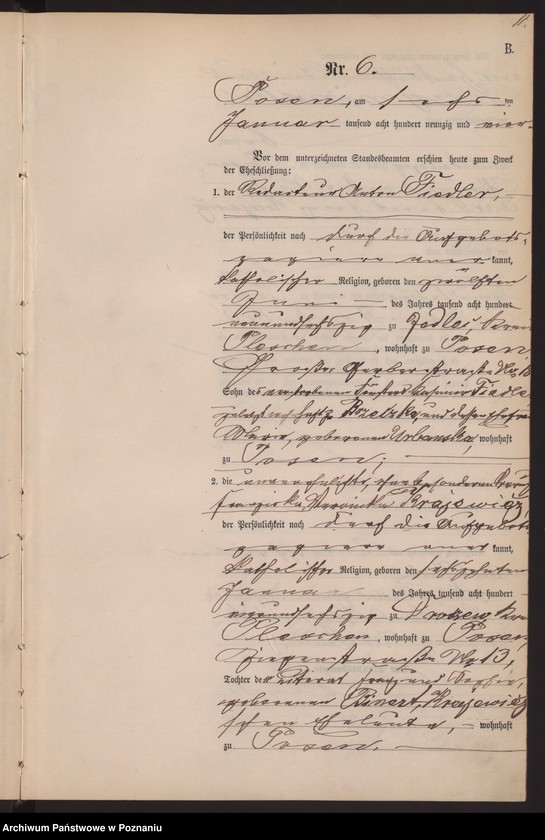 11.
B.
Nr. 6.
Posen, am sechs ten
Januar tausend acht hundert neunzig und vier
Vor dem unterzeichneten Standesbeamten erschien heute zum Zweck
der Eheschließung:
1. der Redacteur Anton Fiedler,
der Persönlichkeit nach durch die Aufgebots-
papiere aner kannt,
katholischer Religion, geboren den zwölften
Juni des Jahres tausend acht hundert
neunundsechszig zu Jedlec Kreis
Pleschen, wohnhaft zu Posen,
Große Gerberstraße No
Sohn des verstorbenen Försters Casimir Fiedler
zuletzt wohnhaft und dessen Ehefrau
Maria, geborenen Urbanska, wohnhaft
zu Posen;
2. die unverehelichte,
Franziska Veronika Krajewicz
der Persönlichkeit nach durch die Aufgebots
papiere aner kannt,
katholischer Religion, geboren den sechszehnten
Januar des Jahres tausend acht hundert
neunundsechszig zu Kreis
Pleschen, wohnhaft zu Posen,
Ziegenstraße No 13,
Tochter der Franz und Sophie,
geborenen Binert, Krajewicz
schen Eheleute, wohnhaft
zu Posen.
Archiwum Państwowe w Poznaniu